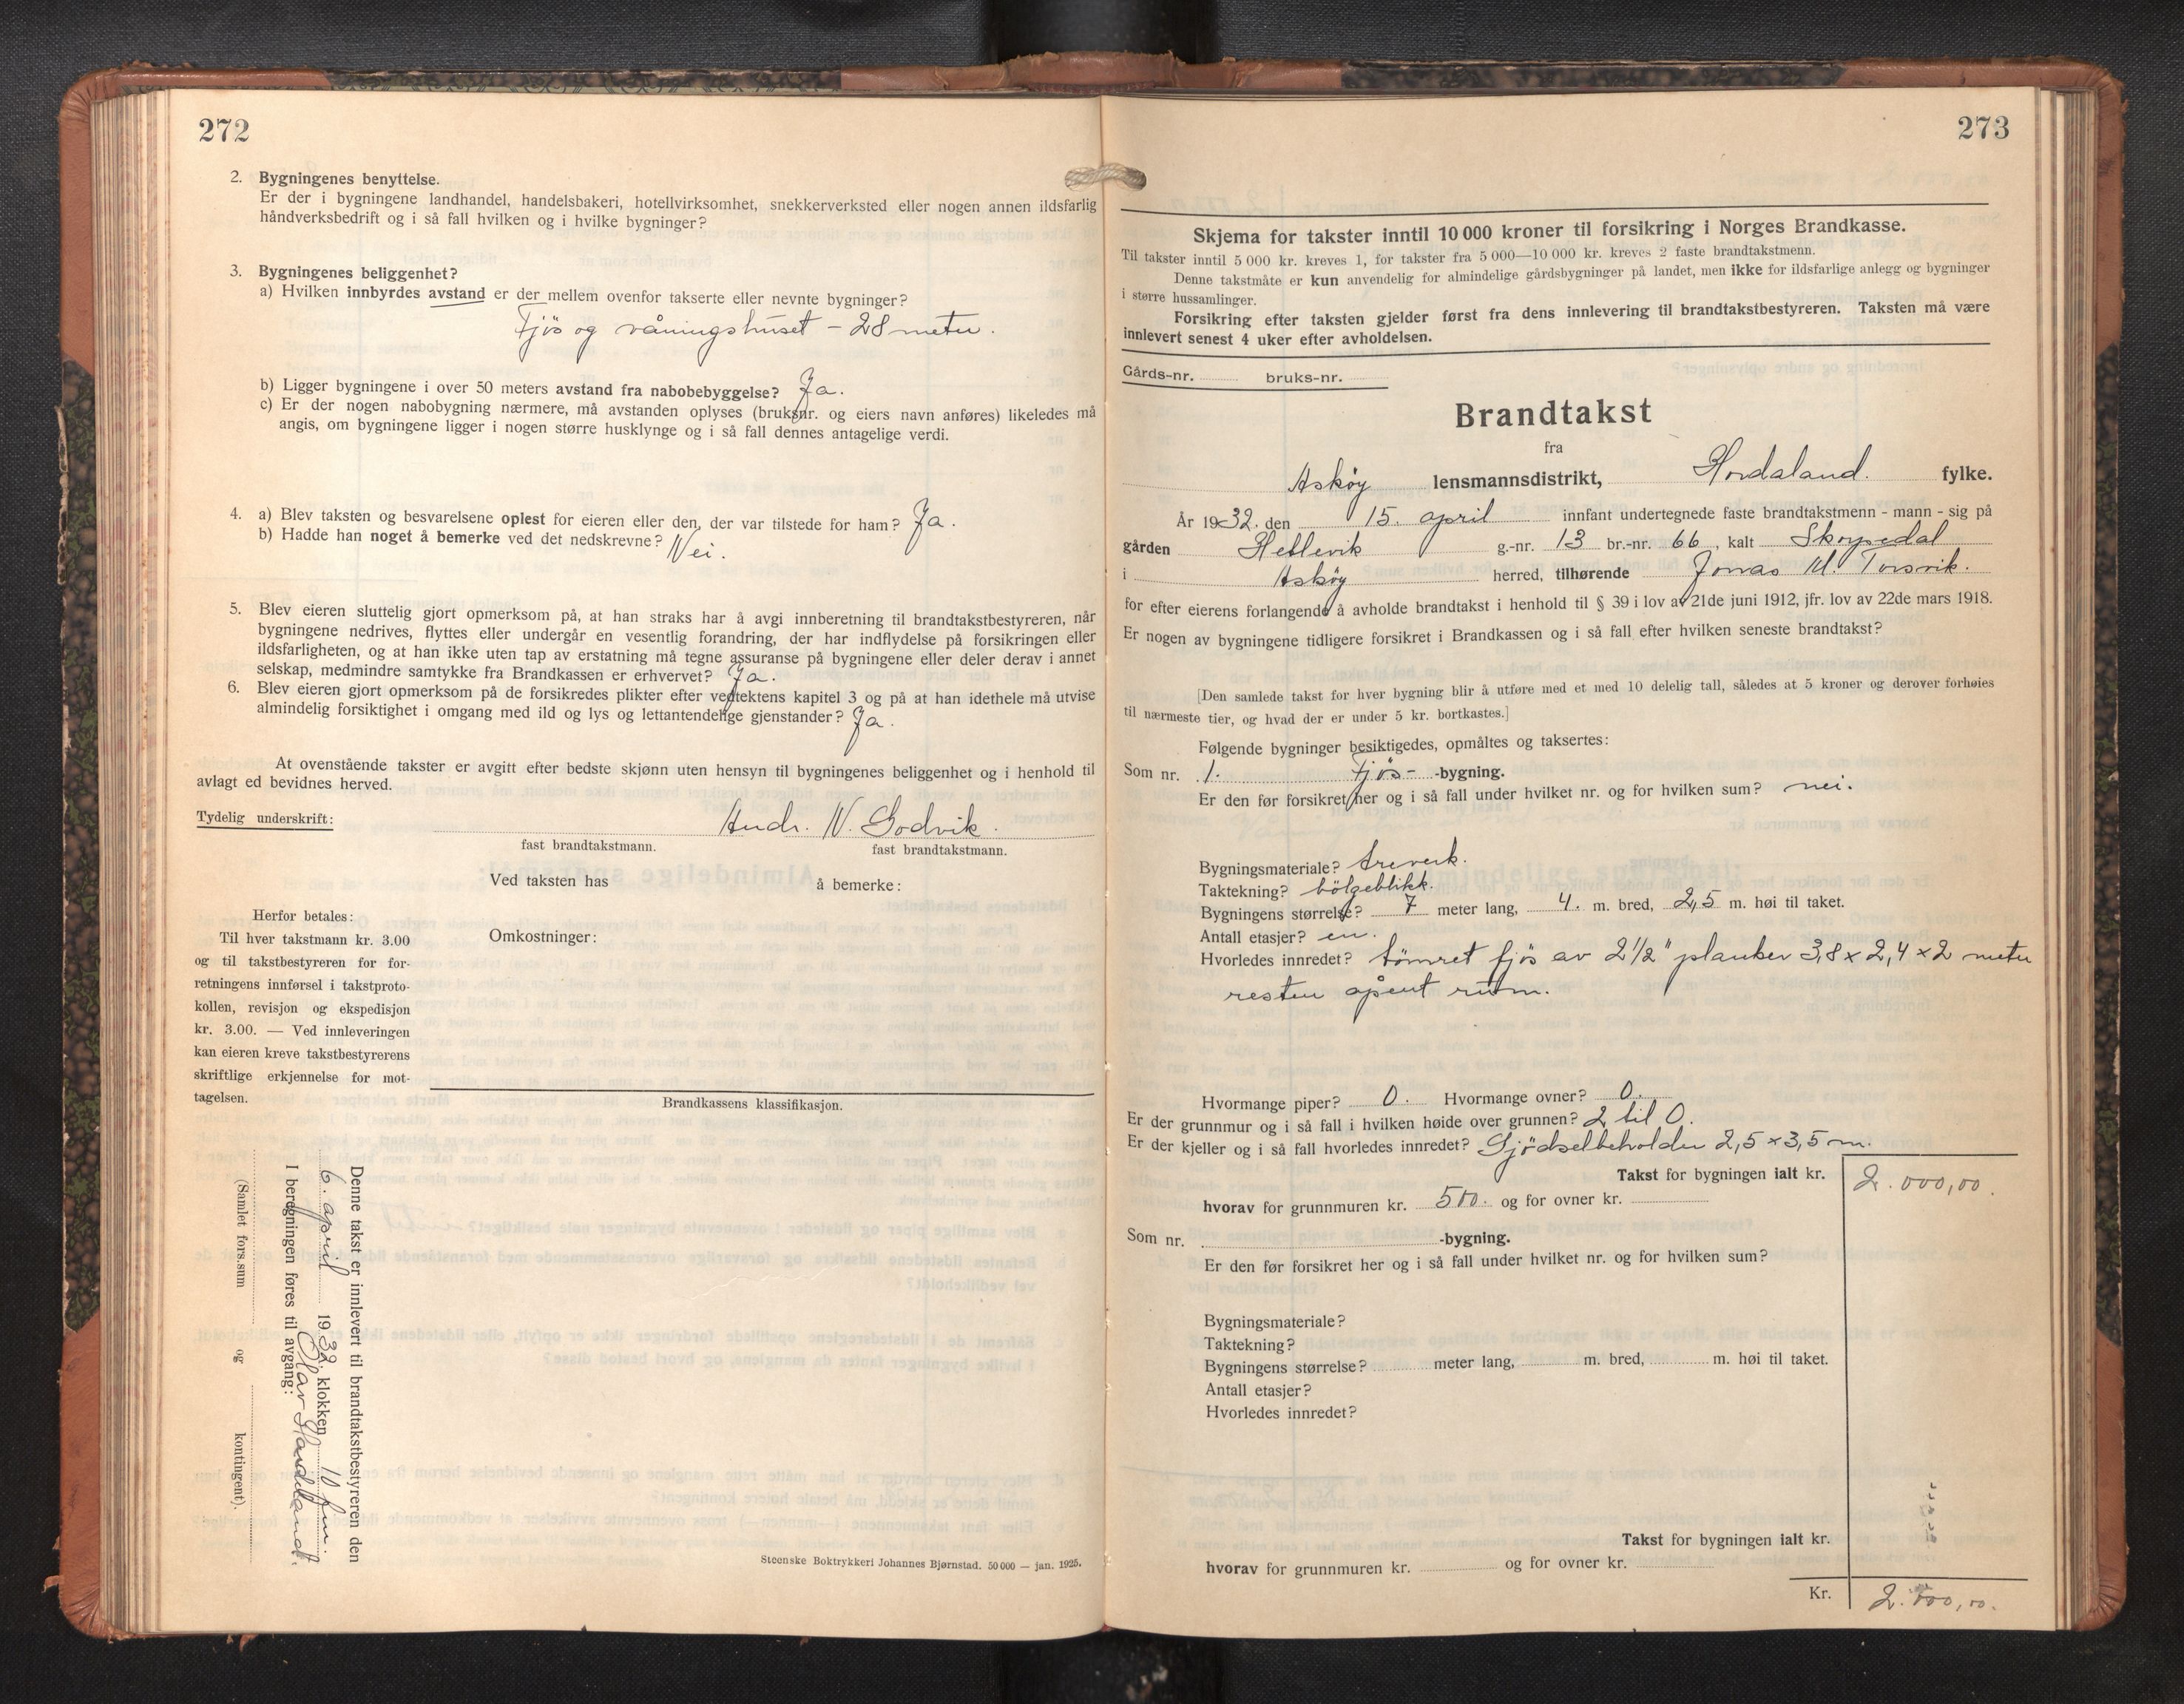 272
2. Bygningenes benyttelse.
Er der i bygningene landhandel, handelsbakeri, hotellvirksomhet, snekkerverksted eller nogen annen ildsfarlig
håndverksbedrift og i så fall hvilken og i hvilke bygninger?
3. Bygningenes beliggenhet?
a) Hvilken innbyrdes avstand er der mellem ovenfor takserte eller nevnte bygninger?
Fjös og våningshuset - 28 meter.
b) Ligger bygningene i over 50 meters avstand fra nabobebyggelse? Ja.
c) Er der nogen nabobygning nærmere, må avstanden oplyses (bruksnr. og eiers navn anføres) likeledes må
angis, om bygningene ligger i nogen større husklynge og i så fall dennes antagelige verdi.
4. a) Blev taksten og besvarelsene oplest for eieren eller den, der var tilstede for ham? Ja.
b) Hadde han noget å bemerke ved det nedskrevne? Nei.
5. Blev eieren sluttelig gjort opmerksom på, at han straks har å avgi innberetning til brandtakstbestyreren, når
bygningene nedrives, flyttes eller undergår en vesentlig forandring, der har indflydelse på forsikringen eller
ildsfarligheten, og at han ikke uten tap av erstatning må tegne assuranse på bygningene eller deler derav i annet
selskap, medmindre samtykke fra Brandkassen er erhvervet? Ja.
6. Blev eieren gjort opmerksom på de forsikredes plikter efter vedtektens kapitel 3 og på at han idethele må utvise
almindelig forsiktighet i omgang med ild og lys og lettantendelige gjenstander? Ja.
At ovenstående takster er avgitt efter bedste skjønn uten hensyn til bygningenes beliggenhet og i henhold til
avlagt ed bevidnes herved.
Tydelig underskrift: Andr. N. Godvik.
fast brandtakstmann. fast brandtakstmann.
Ved taksten has å bemerke:
Herfor betales:
Til hver takstmann kr. 3.00
og til takstbestyreren for for-
retningens innførsel i takstproto-
kollen, revisjon og ekspedisjon
kr. 3.00. — Ved innleveringen
kan eieren kreve takstbestyrerens
skriftlige erkjennelse for mot-
tagelsen.
Omkostninger:
Brandkassens klassifikasjon.
Denne takst er innlevert til brandtakstbestyreren den
6. april 1932. klokken 10 fm.
Olav Handeland.
I beregningen føres til avgang:
(Samlet fors.sum og kontingent).
Steenske Boktrykkeri Johannes Bjørnstad. 50 000 — jan. 1925.
273
Skjema for takster inntil 10 000 kroner til forsikring i Norges Brandkasse.
Til takster inntil 5 000 kr. kreves 1, for takster fra 5 000—10 000 kr. kreves 2 faste brandtakstmenn.
Denne takstmåte er kun anvendelig for almindelige gårdsbygninger på landet, men ikke for ildsfarlige anlegg og bygninger
i større hussamlinger.
Forsikring efter taksten gjelder først fra dens innlevering til brandtakstbestyreren. Taksten må være
innlevert senest 4 uker efter avholdelsen.
Gårds-nr. bruks-nr.
Brandtakst
fra
Askøy lensmannsdistrikt, Hordaland. fylke.
År 1932. den 15. april innfant undertegnede faste brandtakstmenn - mann - sig på
gården Hetlevik g.-nr. 13 br.-nr. 66, kalt Skorpedal
i Askøy herred, tilhørende Jonas M. Torsvik.
for efter eierens forlangende å avholde brandtakst i henhold til § 39 i lov av 21de juni 1912, jfr. lov av 22de mars 1918.
Er nogen av bygningene tidligere forsikret i Brandkassen og i så fall efter hvilken seneste brandtakst?
[Den samlede takst for hver bygning blir å utføre med et med 10 delelig tall, således at 5 kroner og derover forhøies
til nærmeste tier, og hvad der er under 5 kr. bortkastes.]
Følgende bygninger besiktigedes, opmåltes og taksertes:
Som nr. 1. Fjös- -bygning.
Er den før forsikret her og i så fall under hvilket nr. og for hvilken sum? nei.
Bygningsmateriale? treverk.
Taktekning? bölgeblikk.
Bygningens størrelse? 7 meter lang, 4. m. bred, 2,5 m. høi til taket.
Antall etasjer? en.
Hvorledes innredet? tömret fjös av 2 1/2" planker 3,8 x 2,4 x 2 meter
resten åpent rum.
Hvormange piper? 0. Hvormange ovner? 0.
Er der grunnmur og i så fall i hvilken høide over grunnen? 2 til 0.
Er der kjeller og i så fall hvorledes innredet? Gjødselbeholder 2,5 x 3,5 m.
Takst for bygningen ialt kr. 2.000,00.
hvorav for grunnmuren kr. 500. og for ovner kr.
Som nr. -bygning.
Er den før forsikret her og i så fall under hvilket nr. og for hvilken sum?
Bygningsmateriale?
Taktekning?
Bygningens størrelse? meter lang, m. bred, m. høi til taket.
Antall etasjer?
Hvorledes innredet?
Takst for bygningen ialt kr.
hvorav for grunnmuren kr. og for ovner kr.
Kr. 2.000,00.